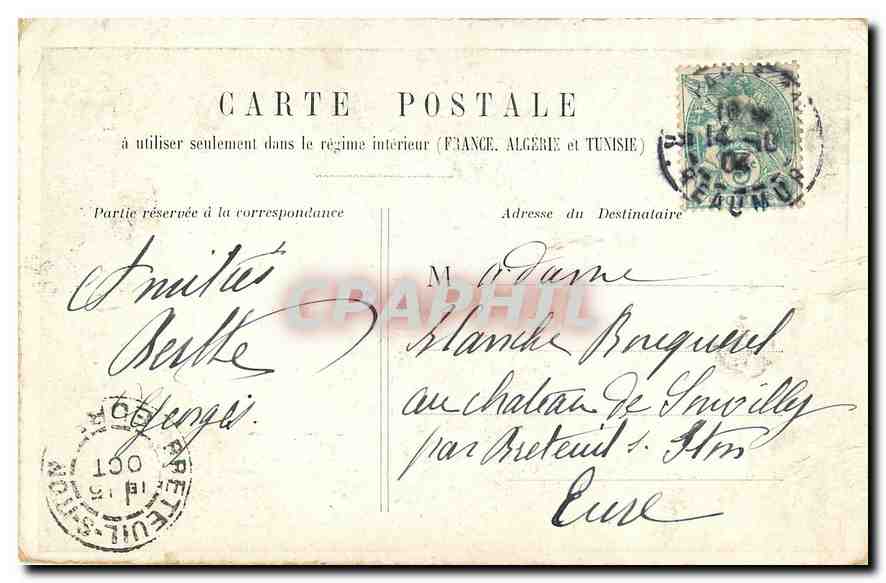 CARTE POSTALE
à utiliser seulement dans le régime intérieur (FRANCE, ALGÉRIE et TUNISIE)
Partie réservée à la correspondance
Adresse du Destinataire
Amitiés
Berthe
Georges.
Madame
Blanche Bouquerel
au chateau de Souvilly
par Breteuil s. Iton
Eure
14
REAUMUR
BRETEUIL-S-ITON
15
OCT
EURE
CPAPHIL